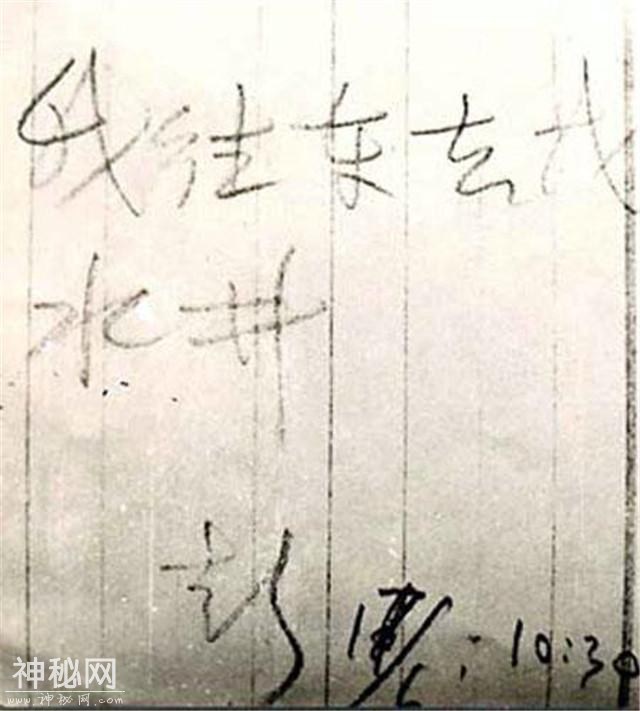 我往东去找
水井
彭 17/6. 10:30
神秘网
www.神秘网.com